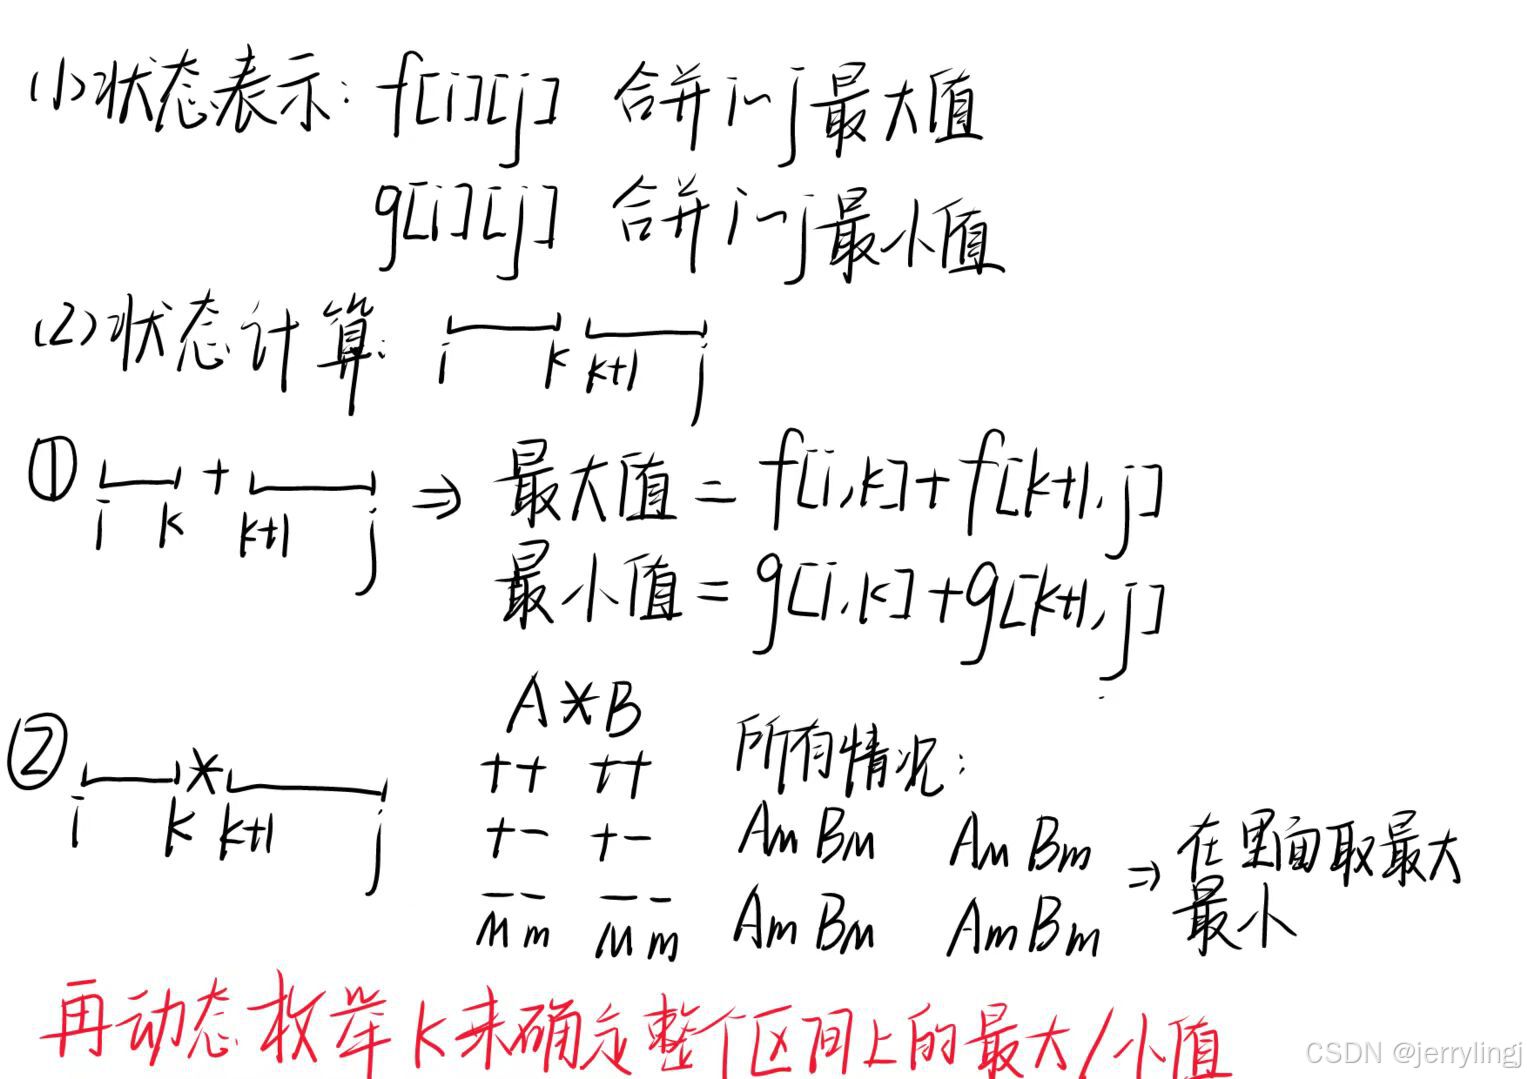 (1)状态表示: f[i][j] 合并i~j最大值
g[i][j] 合并i~j最小值
(2)状态计算: i k k+1 j
① i k + k+1 j ⇒ 最大值 = f[i,k]+f[k+1,j]
最小值 = g[i,k]+g[k+1,j]
② i k * k+1 j
A*B
++ ++
+- +-
-- --
M m M m
所有情况:
AM BM AM Bm
Am BM Am Bm
⇒ 在里面取最大
最小
再动态枚举k来确定整个区间上的最大/小值
CSDN @jerrylingj